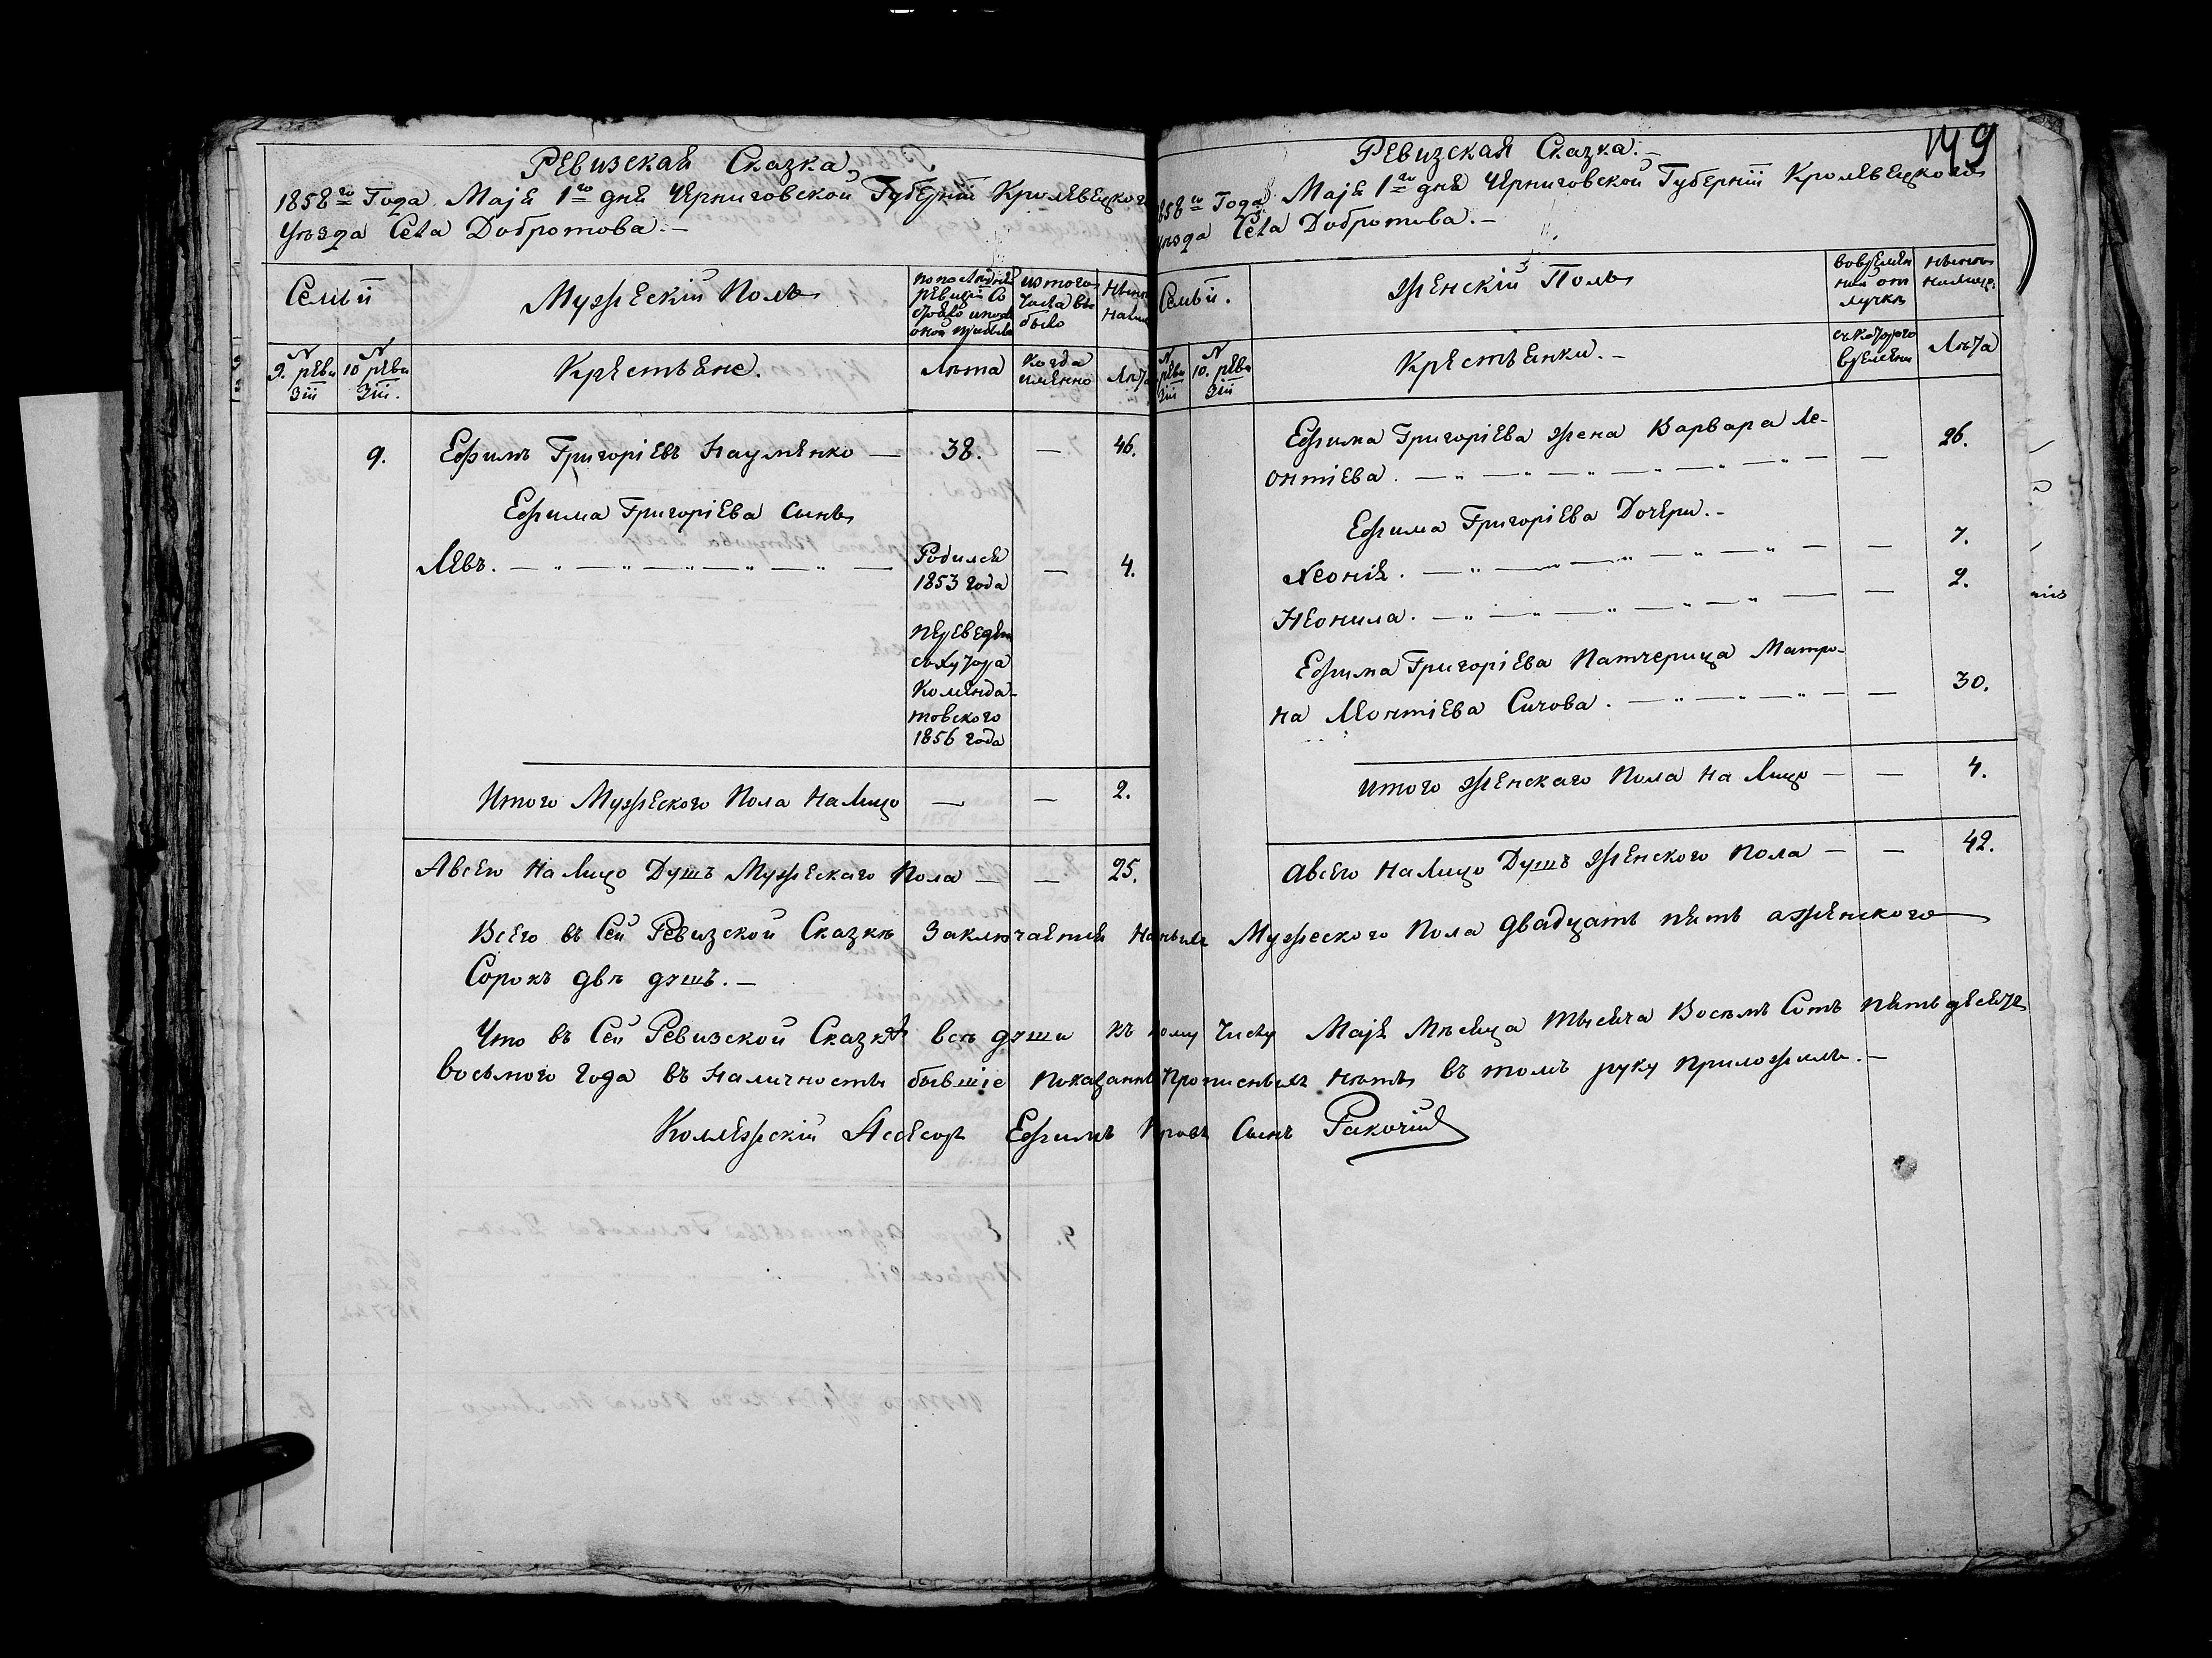 Ревизская Сказка
1858го Года Маія 1го дня Черниговской Губерніи Кролевецкого
Уезда Села Добротова.—
Семьи
Мужескій Полъ
по последней ревизіи Состояло и после оной прибыло
из того числа выбыло
ныне на лицо
N 9. ревизіи
N 10 ревизіи.
Крестьяне.
Лета
Когда именно
Лета
9. Ефимъ Григоріевъ Науменко — 38. — 46.
Ефима Григоріева Сынъ
Левъ. — Родился 1853 года — 4.
переведен
съ хутора
Комендан-
товского
1856 года
Итого Мужеского Пола на Лицо — — 2.
А всего на Лицо Душъ Мужескаго Пола — — 25.
149
Ревизская Сказка.—
1858го Года Маія 1го дня Черниговской Губерніи Кролевецкого
уезда Села Добротова.—
Семьи.
Женскій Полъ
во временной отлучке
ныне на лицо.
N ревизіи
N 10. ревизіи
Крестьянки.—
съ которого времени
Лета
Ефима Григоріева жена Варвара Ле-
онтіева. — — 26.
Ефима Григоріева Дочери.—
Хеонія. — — 7.
Неонила. — — 2.
Ефима Григоріева Патчерица Матро-
на Леонтіева Сичова. — — 30.
Итого Женскаго Пола на Лицо — — 4.
А всего на Лицо Душъ Женского Пола — — 42.
Всего въ Сей Ревизской Сказке Заключается наличныхъ Мужеского Пола двадцать пять а Женского
Сорокъ две душъ.—
Что въ Сей Ревизской Сказке все души къ 1му Числу Маія Месяца тысяча Восемь Сотъ пятьдесятъ
восьмого года въ Наличности бывшіе показаны Прописныхъ нетъ въ томъ руку приложилъ.—
Коллежскій Асесоръ Ефимъ Сынъ